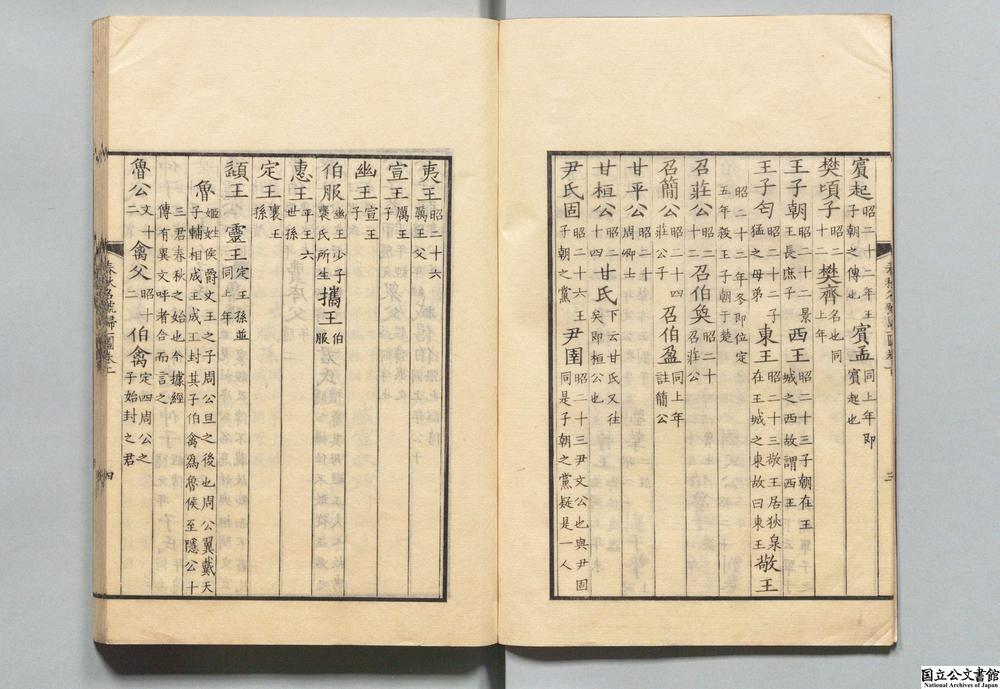 賓起昭二十二年王子朝之傅也 賓孟同上年即賓起也
樊頃子昭二十二 樊齊名也同上年
王子朝昭二十二景王長庶子 西王昭二十三子朝在王城之西故謂西王
王子匄猛之母弟昭二十二年冬即位定五年殺王子朝于楚 東王昭二十三敬王居狄泉在王城之東故曰東王 敬王
召莊公昭二十二 召伯奐昭二十召莊公
召簡公昭二十四莊公子 召伯盈同上年註簡公
甘平公昭二十二周卿士
甘桓公昭二十四 甘氏下云甘氏又往矣即桓公也
尹氏固昭二十六子朝之黨 尹圉昭二十三尹文公也與尹固同是子朝之黨疑是一人
三
夷王昭二十六厲王父
宣王厲王子
幽王宣王子
伯服幽王少子褒氏所生 攜王伯服
惠王平王六世孫
定王襄王孫
頊王 靈王定王孫並同上年
魯姬姓侯爵文王之子周公旦之後也周公翼戴天子輔相成王成王封其子伯禽爲魯侯至隱公十三君春秋之始也今據經傳有異文呼者合而言之
魯公文十二 禽父昭十二 伯禽定四周公之子始封之君
春秋名號歸一圖卷上
四
国立公文書館
National Archives of Japan